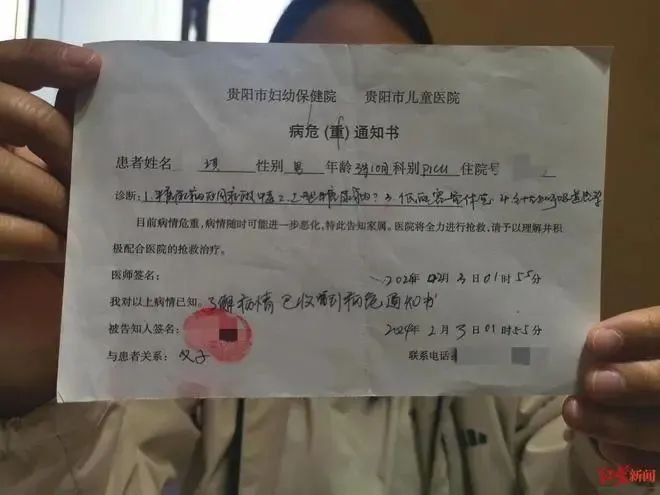 贵阳市妇幼保健院 贵阳市儿童医院
病危(重)通知书
患者姓名 琪 性别 男 年龄 3岁10月 科别 PICU 住院号
诊断: 1.糖尿病酮症酸中毒 2. 型糖尿病? 3.低血容量休克 4.
目前病情危重,病情随时可能进一步恶化,特此告知家属。医院将全力进行抢救,请予以理解并积
极配合医院的抢救治疗。
医师签名: 2024年 2月 3日 01时 55分
我对以上病情已知。了解病情已收到病危通知书
被告知人签名: 2024年 2月 3日 01时 55分
与患者关系: 父子 联系电话:
红星新闻